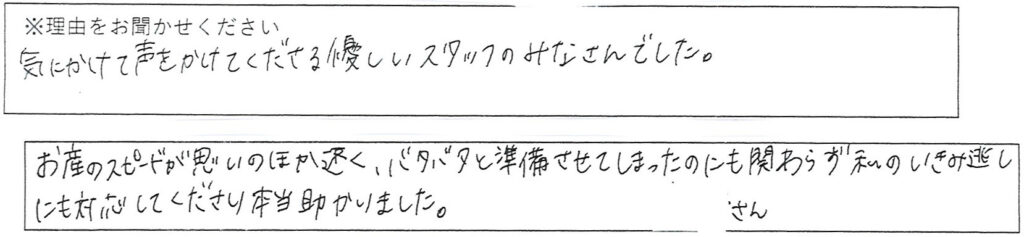 ※理由をお聞かせください
気にかけて声をかけてくださる優しいスタッフのみなさんでした。
お産のスピードが思いのほか速く、バタバタと準備させてしまったのにも関わらず私のいきみ逃し
にも対応してくださり本当助かりました。 さん